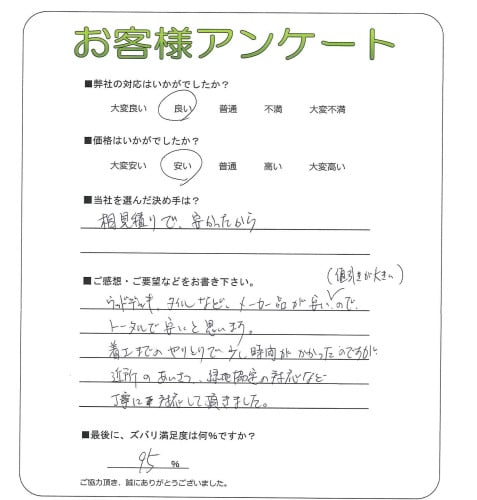 お客様アンケート
■弊社の対応はいかがでしたか？
大変良い 良い 普通 不満 大変不満
■価格はいかがでしたか？
大変安い 安い 普通 高い 大変高い
■当社を選んだ決め手は？
相見積りで、安かったから
■ご感想・ご要望などをお書き下さい。
(値引きが大きい)
ウッドデッキ、タイルなど、メーカー品が安いので、
トータルで安いと思います。
着工までのやりとりで少し時間がかかったのですが
近所のあいさつ、緑地協定の対応など
丁寧に対応して頂きました。
■最後に、ズバリ満足度は何％ですか？
95 ％
ご協力頂き、誠にありがとうございました。